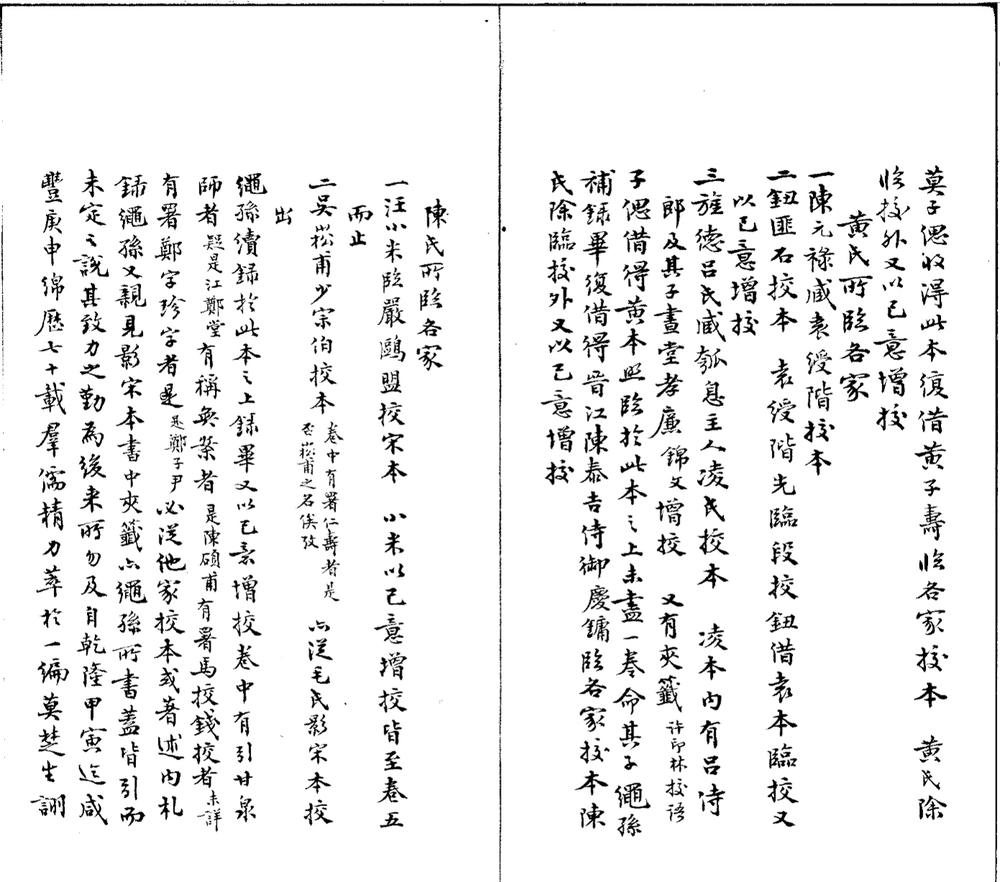 莫子偲收得此本復借黄子壽臨各家挍本　黄氏除
臨挍外又以己意增挍
黄氏所臨各家
一陳元祿臧袁綬階挍本
二鈕匪石挍本　袁綬階先臨段挍鈕借袁本臨挍又
以己意增挍
三旌德吕氏臧瓠息主人凌氏挍本　凌本内有吕侍
郎及其子晝堂孝廉錦文增挍　又有夾籤許印林挍語
子偲借得黄本照臨於此本之上未盡一卷命其子繩孫
補録畢復借得晋江陳泰吉侍御慶鏞臨各家挍本陳
氏除臨挍外又以己意增挍
陳氏所臨各家
一汪小米臨嚴鷗盟挍宋本　小米以己意增挍皆至卷五
而止
二吴崧甫少宗伯挍本卷中有署仁壽者是否崧甫之名俟攷　亦從毛氏影宋本挍
出
繩孫續録於此本之上録畢又以己意增挍卷中有引甘泉
師者疑是江鄭堂有稱奂案者是陳碩甫有署馬挍錢挍者未詳
有署鄭字珍字者是是鄭子尹必從他家挍本或著述内札
録繩孫又親見影宋本書中夾籤亦繩孫所書蓋皆引而
未定之説其致力之勤為後来所勿及自乾隆甲寅迄咸
豐庚申綿歷七十載羣儒精力萃於一編莫楚生詡